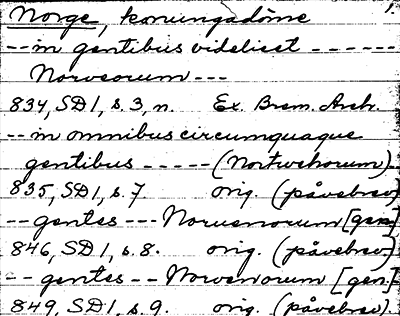 Norge, konungadöme 1.
-- in gentibus videlicet ------
Norveorum ---
834, SD 1, s. 3, n. Ex. Brem. Arch.
-- in omnibus circumquaque
gentibus ----- (Nortwehorum)
835, SD 1, s. 7. orig. (påvebrev)
-- gentes --- Noruenorum [gen.]
846, SD 1, s. 8. orig. (påvebrev)
-- gentes -- Norvenorum [gen.]
849, SD 1, s. 9. orig. (påvebrev).